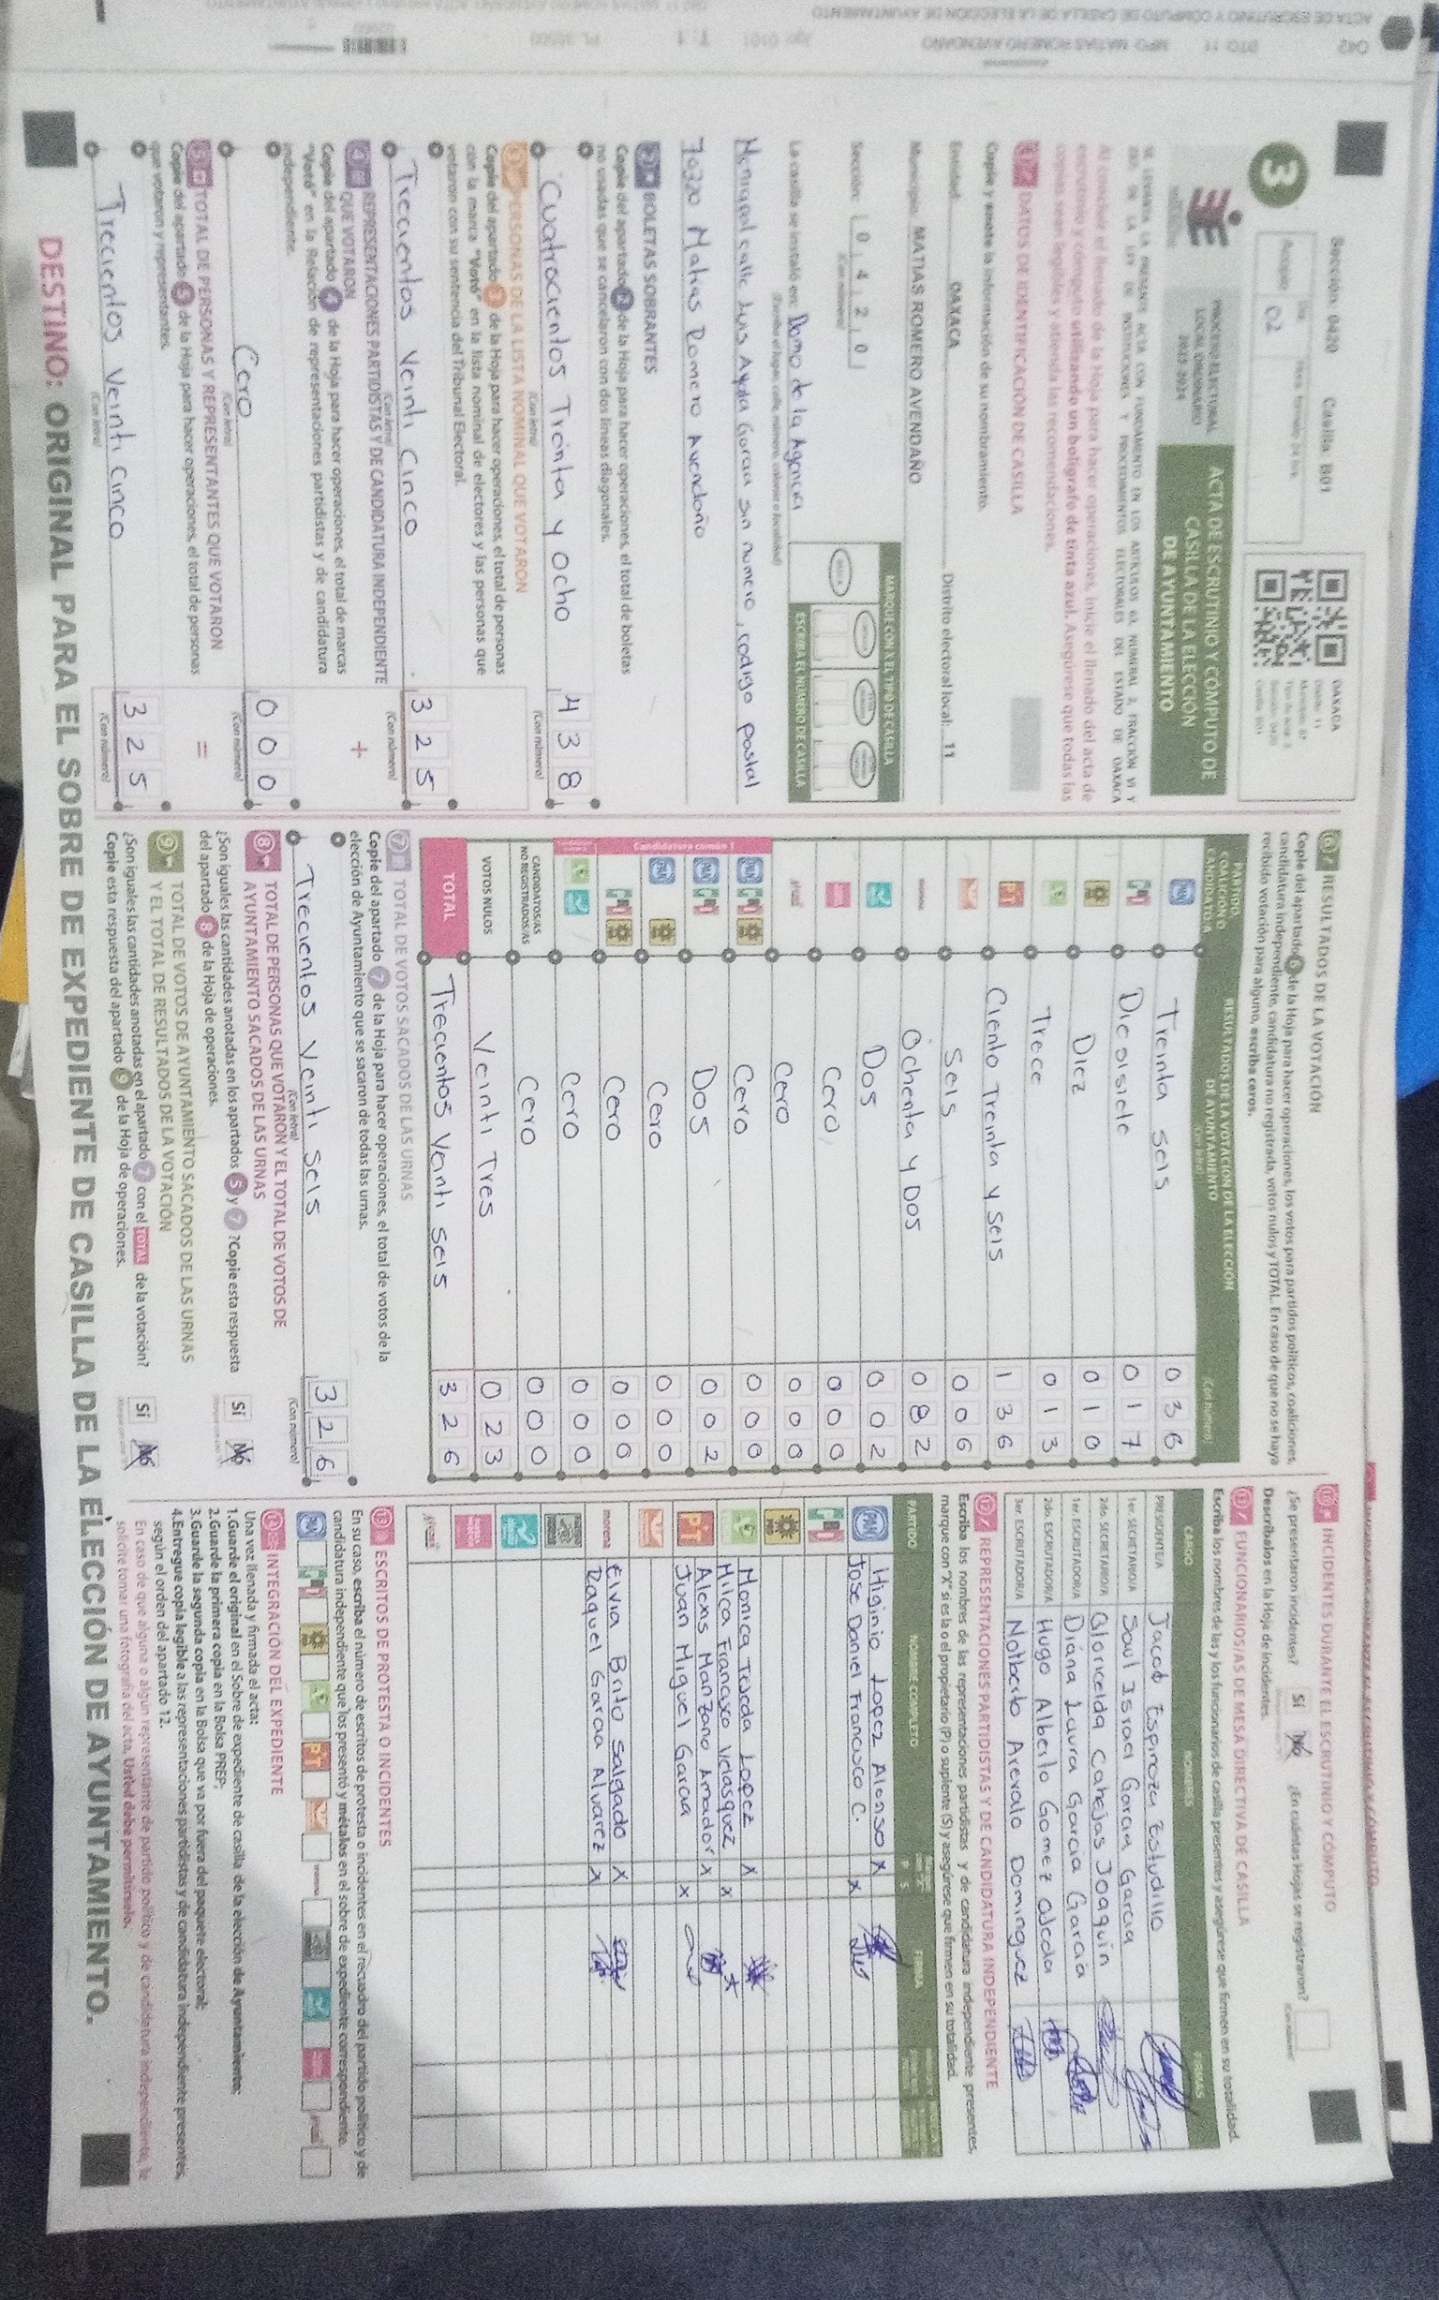 Sección: 0420 Casilla: B01
OAXACA
3
Acopio 02
PROCESO ELECTORAL
LOCAL ORDINARIO
2023-2024
ACTA DE ESCRUTINIO Y CÓMPUTO DE
CASILLA DE LA ELECCIÓN
DE AYUNTAMIENTO
SE LEVANTA LA PRESENTE ACTA CON FUNDAMENTO EN LOS ARTÍCULOS
Al concluir el llenado de la Hoja para hacer operaciones, inicie el llenado del acta de
escrutinio y cómputo utilizando un bolígrafo de tinta azul. Asegúrese que todas las
copias sean legibles y atienda las recomendaciones.
DATOS DE IDENTIFICACIÓN DE CASILLA
Copie y anote la información de su nombramiento.
Entidad: OAXACA Distrito electoral local: 11
Municipio: MATIAS ROMERO AVENDAÑO
Sección: 0 4 2 0
MARQUE CON X EL TIPO DE CASILLA
ESCRIBA EL NÚMERO DE CASILLA
La casilla se instaló en: Domo de la Agencia
calle sin numero, codigo postal
70320 Matias Romero Avendaño
BOLETAS SOBRANTES
Copie del apartado 2 de la Hoja para hacer operaciones, el total de boletas
no usadas que se cancelaron con dos líneas diagonales.
Cuatrocientos Treinta y ocho 4 3 8
(Con letra) (Con número)
PERSONAS DE LA LISTA NOMINAL QUE VOTARON
Copie del apartado 3 de la Hoja para hacer operaciones, el total de personas
con la marca "Votó" en la lista nominal de electores y las personas que
votaron con su sentencia del Tribunal Electoral.
Trecientos Veinti cinco 3 2 5
(Con letra) (Con número)
REPRESENTACIONES PARTIDISTAS Y DE CANDIDATURA INDEPENDIENTE
QUE VOTARON +
Copie del apartado 4 de la Hoja para hacer operaciones, el total de marcas
"Votó" en la Relación de representaciones partidistas y de candidatura
independiente.
Cero 0 0 0
(Con letra) (Con número)
TOTAL DE PERSONAS Y REPRESENTANTES QUE VOTARON =
Copie del apartado 5 de la Hoja para hacer operaciones, el total de personas
que votaron y representantes.
Trecientos Veinti cinco 3 2 5
(Con letra) (Con número)
RESULTADOS DE LA VOTACIÓN
Copie del apartado 6 de la Hoja para hacer operaciones, los votos para partidos políticos, coaliciones,
candidatura independiente, candidatura no registrada, votos nulos y TOTAL. En caso de que no se haya
recibido votación para alguno, escriba ceros.
PARTIDO, COALICIÓN O CANDIDATO/A
RESULTADOS DE LA VOTACIÓN DE LA ELECCIÓN DE AYUNTAMIENTO
PAN Treinta seis 0 3 6
PRI Diesisiete 0 1 7
PRD Diez 0 1 0
Trece 0 1 3
PT Ciento Treinta y seis 1 3 6
Seis 0 0 6
Ochenta y Dos 0 8 2
Dos 0 0 2
Cero 0 0 0
Cero 0 0 0
Candidatura común 1
Cero 0 0 0
Dos 0 0 2
Cero 0 0 0
Cero 0 0 0
Cero 0 0 0
CANDIDATOS/AS NO REGISTRADOS/AS Cero 0 0 0
VOTOS NULOS Veinti Tres 0 2 3
TOTAL Trecientos Veinti seis 3 2 6
TOTAL DE VOTOS SACADOS DE LAS URNAS
Copie del apartado 7 de la Hoja para hacer operaciones, el total de votos de la
elección de Ayuntamiento que se sacaron de todas las urnas.
Trecientos Veinti seis 3 2 6
(Con letra) (Con número)
8 TOTAL DE PERSONAS QUE VOTARON Y EL TOTAL DE VOTOS DE
AYUNTAMIENTO SACADOS DE LAS URNAS
¿Son iguales las cantidades anotadas en los apartados 5 y 7? Copie esta respuesta
del apartado 8 de la Hoja de operaciones. Sí No
9 TOTAL DE VOTOS DE AYUNTAMIENTO SACADOS DE LAS URNAS
Y EL TOTAL DE RESULTADOS DE LA VOTACIÓN
¿Son iguales las cantidades anotadas en el apartado 7 con el TOTAL de la votación?
Copie esta respuesta del apartado 9 de la Hoja de operaciones. Sí No
INCIDENTES DURANTE EL ESCRUTINIO Y CÓMPUTO
¿Se presentaron incidentes? Sí No ¿En cuántas Hojas se registraron?
Descríbalos en la Hoja de incidentes.
FUNCIONARIOS/AS DE MESA DIRECTIVA DE CASILLA
Escriba los nombres de las y los funcionarios de casilla presentes y asegúrese que firmen en su totalidad.
CARGO NOMBRES FIRMAS
PRESIDENTE/A Jacob Espinoza Estudillo
1er. SECRETARIO/A Saul Israel Garcia Garcia
2do. SECRETARIO/A Gloricelda Cabajas Joaquin
1er. ESCRUTADOR/A Diana Laura Garcia Garcia
2do. ESCRUTADOR/A Hugo Alberto Gomez
3er. ESCRUTADOR/A Nolberto Arevalo Dominguez
12 REPRESENTACIONES PARTIDISTAS Y DE CANDIDATURA INDEPENDIENTE
Escriba los nombres de las representaciones partidistas y de candidatura independiente presentes,
marque con "X" si es la o el propietario (P) o suplente (S) y asegúrese que firmen en su totalidad.
PARTIDO NOMBRE COMPLETO FIRMA
PAN Higinio Lopez Alonso X
Jose Daniel Francisco C. X
Monica Lopez X
Hilca Francisco Velasquez X
PT Alexis Manzano Amador X
Juan Miguel Garcia X
morena Elvia Brito Salgado X
Raquel Garcia Alvarez X
13 ESCRITOS DE PROTESTA O INCIDENTES
En su caso, escriba el número de escritos de protesta o incidentes en el recuadro del partido político y de
candidatura independiente que los presentó y métalos en el sobre de expediente correspondiente.
INTEGRACIÓN DEL EXPEDIENTE
Una vez llenada y firmada el acta:
1.Guarde el original en el Sobre de expediente de casilla de la elección de Ayuntamiento;
2.Guarde la primera copia en la Bolsa PREP;
3.Guarde la segunda copia en la Bolsa que va por fuera del paquete electoral;
4.Entregue copia legible a las representaciones partidistas y de candidatura independiente presentes,
según el orden del apartado 12.
En caso de que alguna o algún representante de partido político y de candidatura independiente, le
solicite tomar una fotografía del acta, Usted debe permitírselo.
DESTINO: ORIGINAL PARA EL SOBRE DE EXPEDIENTE DE CASILLA DE LA ELECCIÓN DE AYUNTAMIENTO.